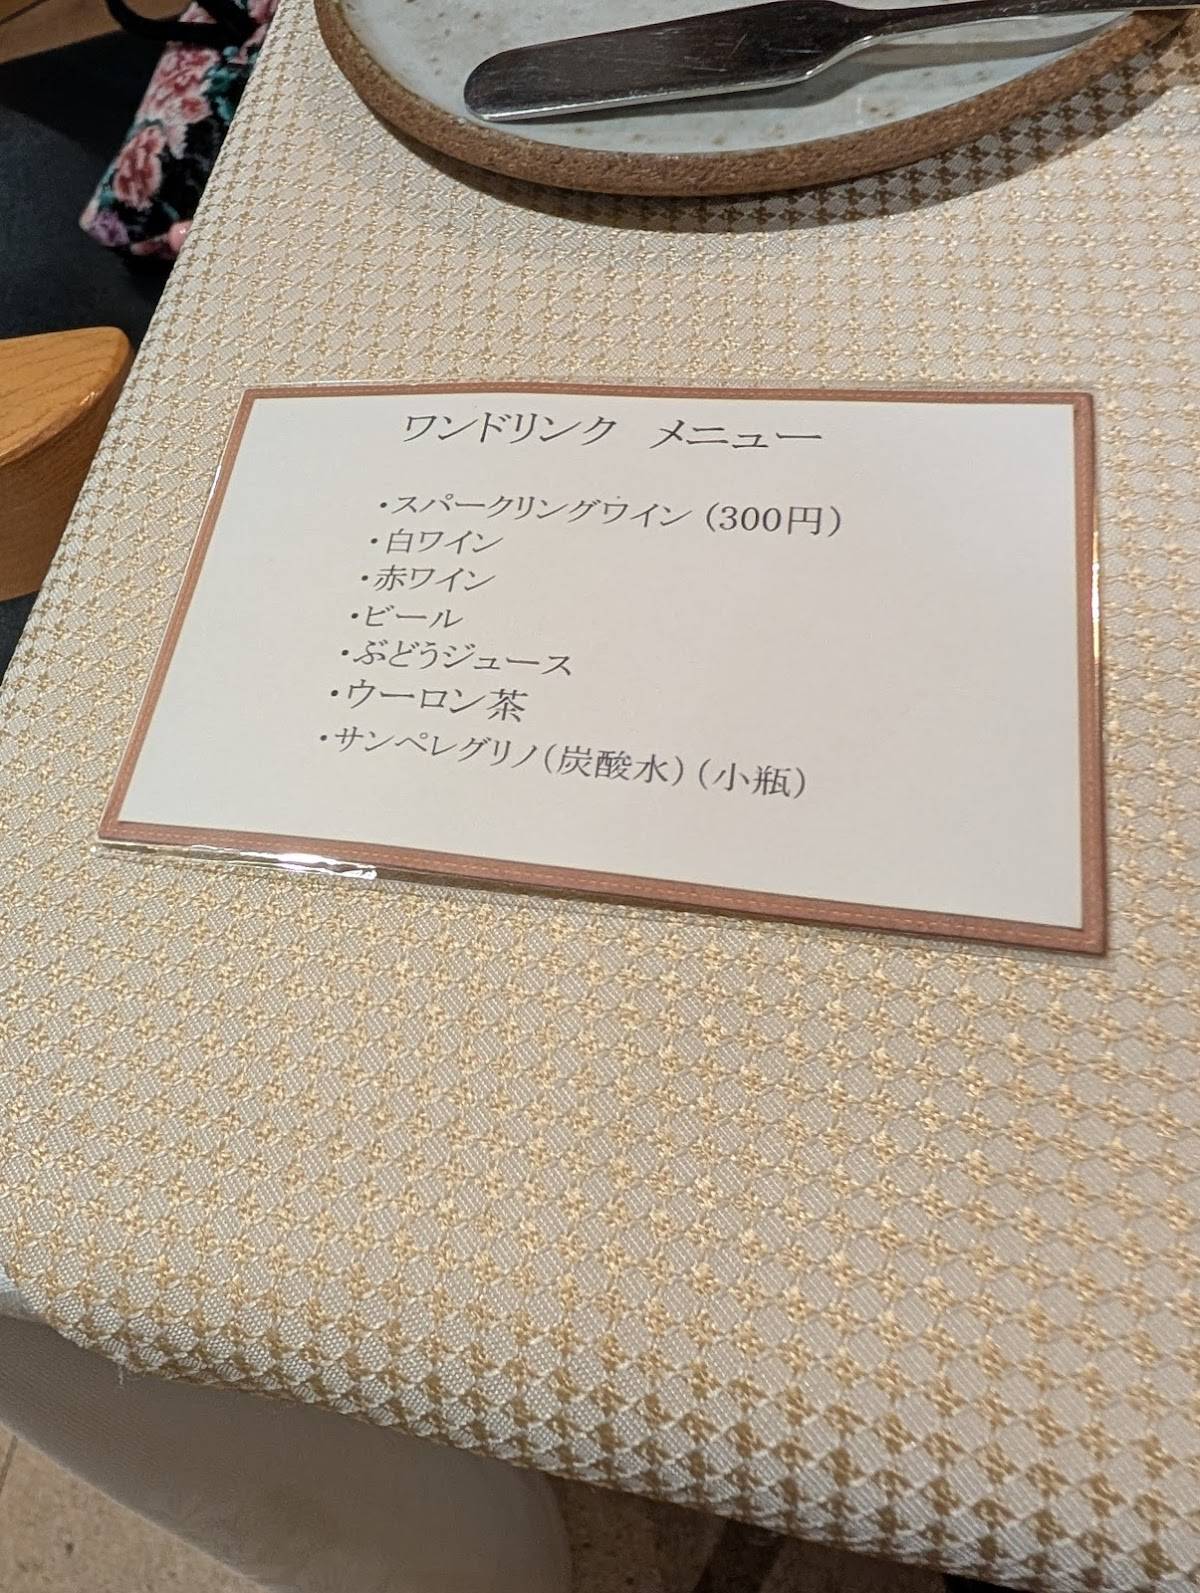 ワンドリンク　メニュー
・スパークリングワイン（300円）
・白ワイン
・赤ワイン
・ビール
・ぶどうジュース
・ウーロン茶
・サンペレグリノ（炭酸水）（小瓶）